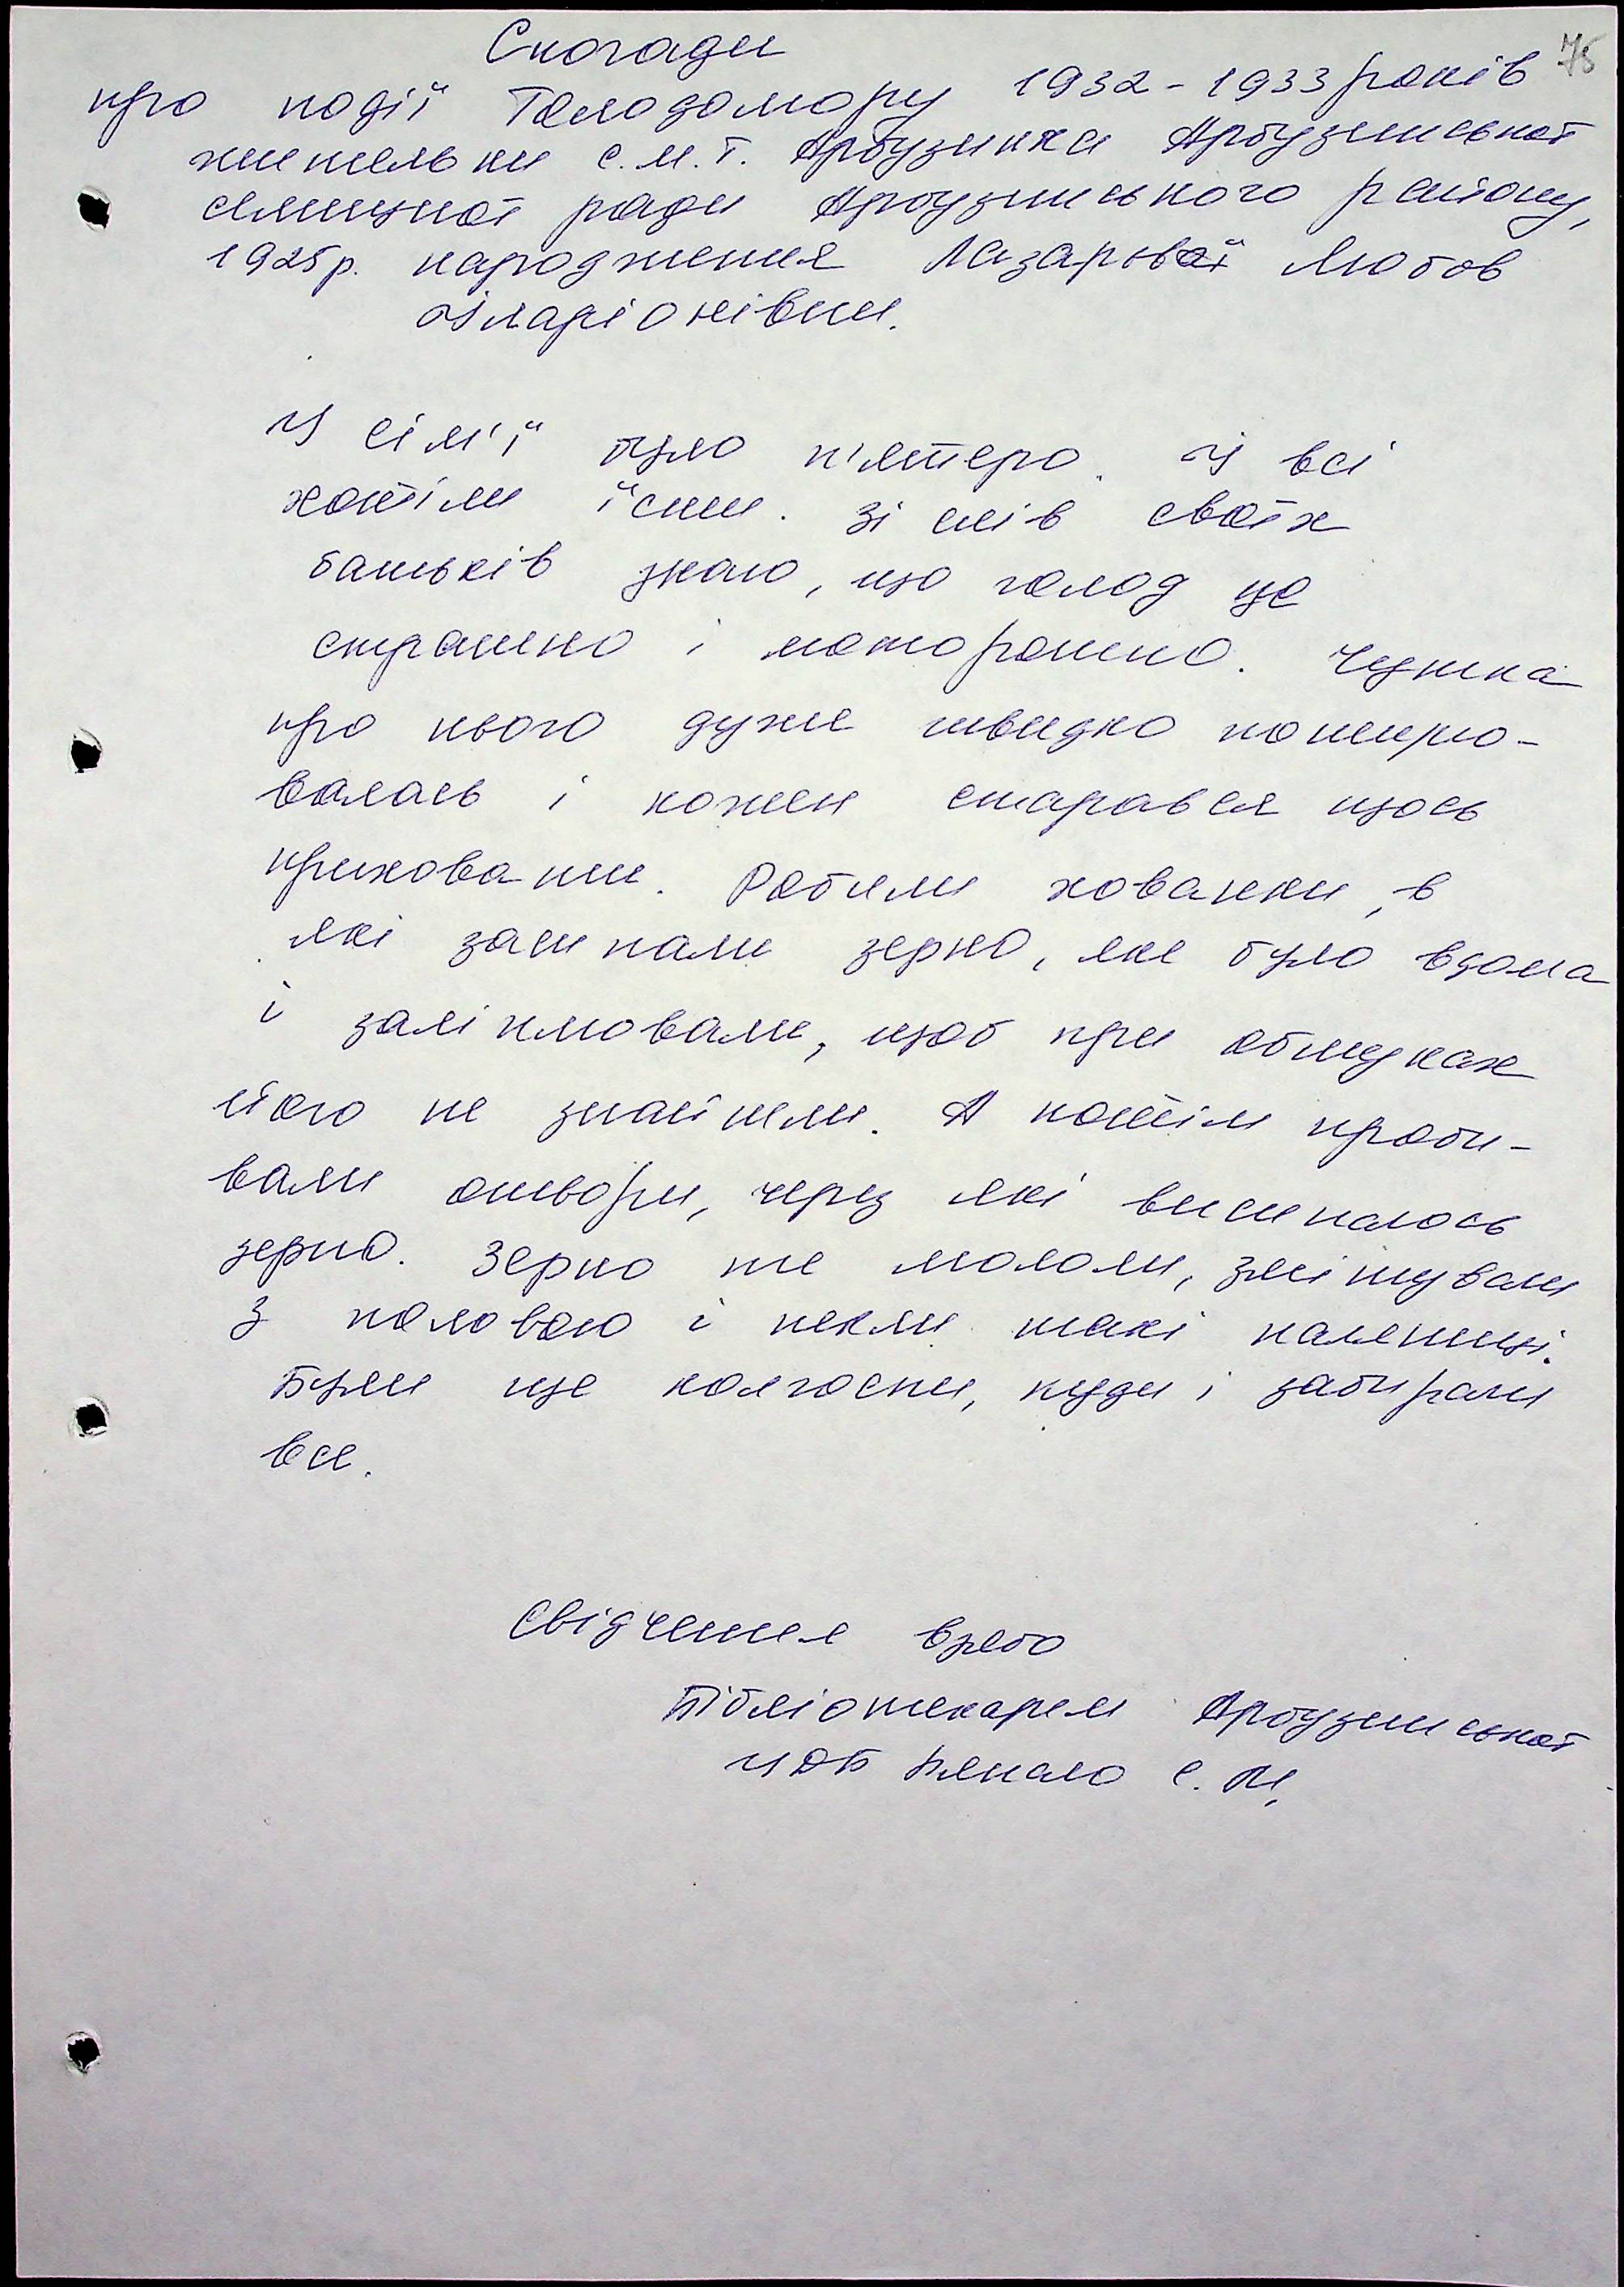 75
Спогади
про події Голодомору 1932-1933 років
жительки с.м.т. Арбузинка Арбузинської
селищної ради Арбузинського району,
1925р. народження Лазарєвої Любов
Іларіонівни.
У сім'ї було п'ятеро. Й всі
хотіли їсти. Зі слів своїх
батьків знаю, що голод це
страшно і моторошно. Чутка
про нього дуже швидко поширю-
валась і кожен старався щось
приховати. Робили хованки, в
які засипали зерно, яке було вдома
і заліплювали, щоб при обшуках
його не знайшли. А потім проби-
вали отвори, через які висипалось
зерно. Зерно те мололи, змішували
з половою і пекли такі паляниці.
Були ще колгоспи, куди і забирали
все.
Свідчення взято
Бібліотекарем Арбузинської
ЦДБ С. М.